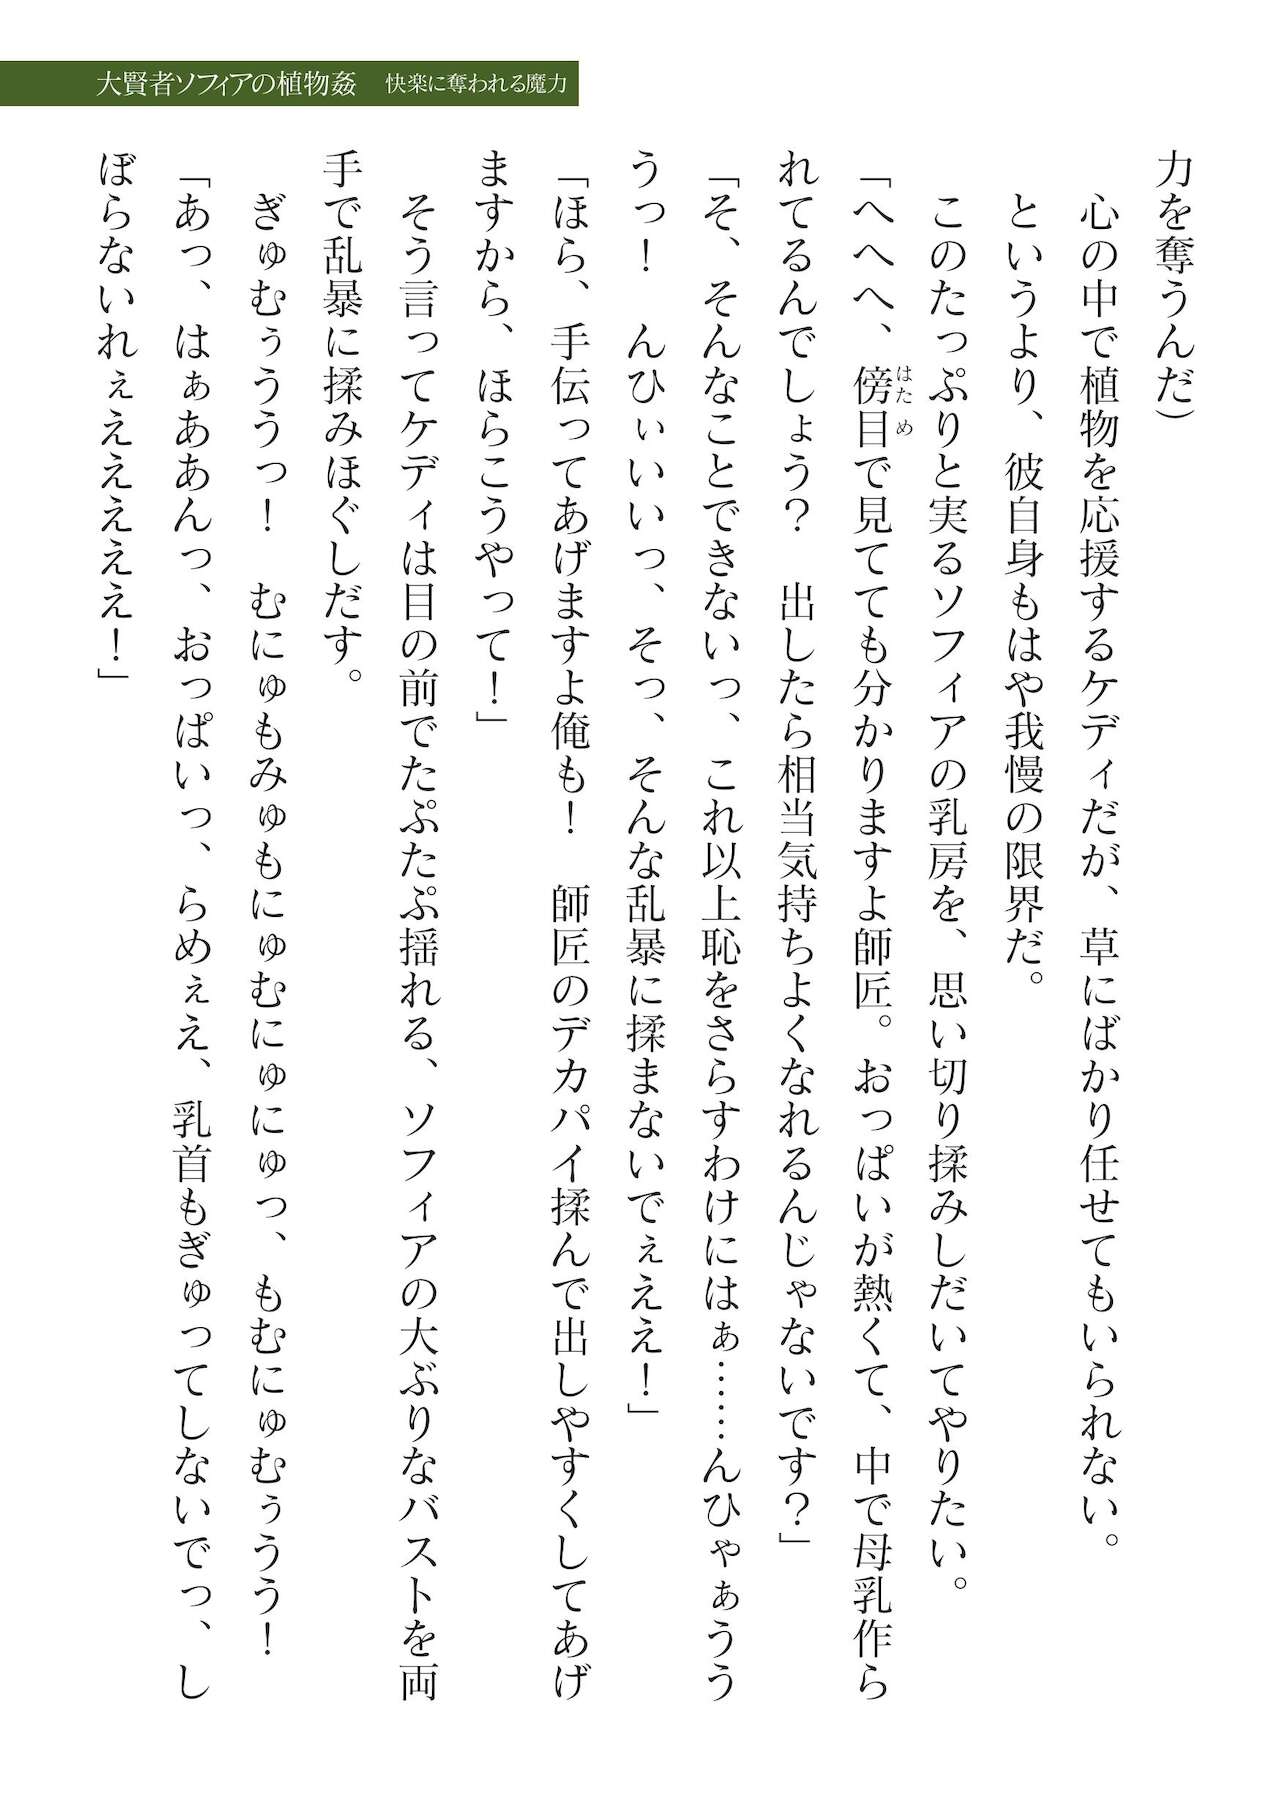 大賢者ソフィアの植物姦　快楽に奪われる魔力
力を奪うんだ）
　心の中で植物を応援するケディだが、草にばかり任せてもいられない。
　というより、彼自身もはや我慢の限界だ。
　このたっぷりと実るソフィアの乳房を、思い切り揉みしだいてやりたい。
「へへへ、傍目で見てても分かりますよ師匠。おっぱいが熱くて、中で母乳作ら
はため
れてるんでしょう？　出したら相当気持ちよくなれるんじゃないです？」
「そ、そんなことできないっ、これ以上恥をさらすわけにはぁ……んひゃぁうう
うっ！　んひぃいいっ、そっ、そんな乱暴に揉まないでぇええ！」
「ほら、手伝ってあげますよ俺も！　師匠のデカパイ揉んで出しやすくしてあげ
ますから、ほらこうやって！」
　そう言ってケディは目の前でたぷたぷ揺れる、ソフィアの大ぶりなバストを両
手で乱暴に揉みほぐしだす。
　ぎゅむぅううっ！　むにゅもみゅもにゅむにゅにゅっ、もむにゅむぅうう！
「あっ、はぁああんっ、おっぱいっ、らめぇえ、乳首もぎゅってしないでっ、し
ぼらないれぇええええええ！」